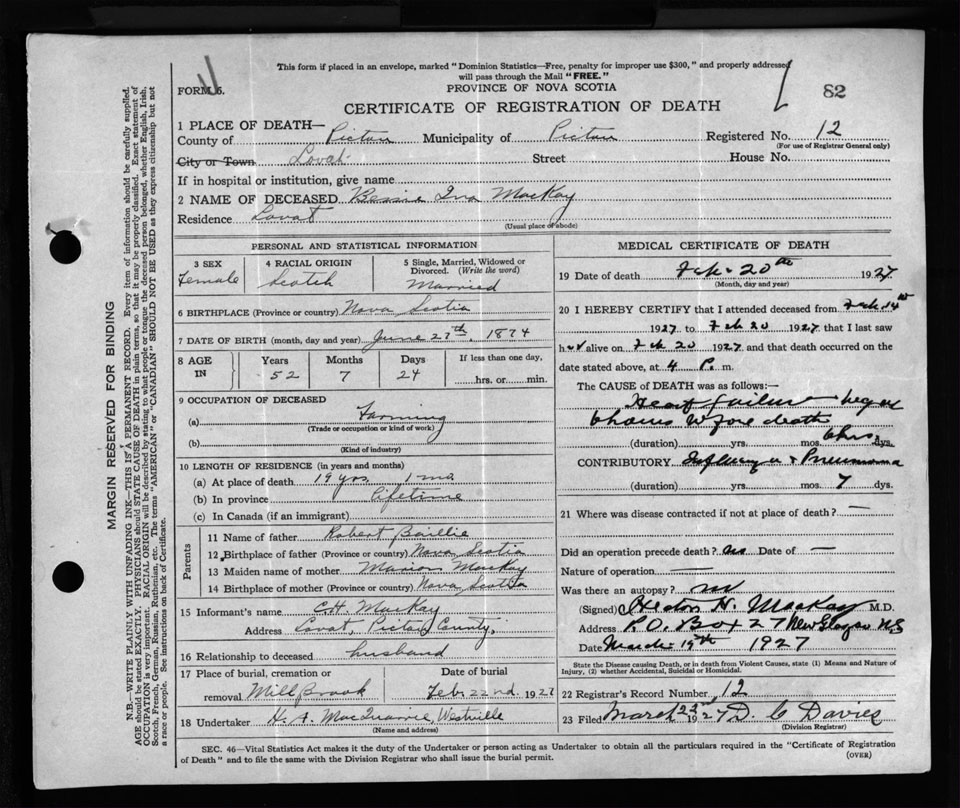 This form if placed in an envelope, marked "Dominion Statistics—Free, penalty for improper use $300," and properly addressed
will pass through the Mail "FREE."
FORM 6.
PROVINCE OF NOVA SCOTIA
82
CERTIFICATE OF REGISTRATION OF DEATH
1 PLACE OF DEATH—
County of Pictou Municipality of Pictou Registered No. 12
(For use of Registrar General only)
City or Town Lovat Street House No.
If in hospital or institution, give name
2 NAME OF DECEASED Bessie Iva MacKay
Residence Lovat
(Usual place of abode)
PERSONAL AND STATISTICAL INFORMATION
3 SEX 4 RACIAL ORIGIN 5 Single, Married, Widowed or Divorced. (Write the word)
Female Scotch Married
6 BIRTHPLACE (Province or country) Nova Scotia
7 DATE OF BIRTH (month, day and year) June 27th, 1874
8 AGE IN Years Months Days If less than one day,
52 7 24 hrs. or min.
9 OCCUPATION OF DECEASED
(a) Farming
(Trade or occupation or kind of work)
(b)
(Kind of industry)
10 LENGTH OF RESIDENCE (in years and months)
(a) At place of death 19 yrs. 1 mo.
(b) In province Lifetime
(c) In Canada (if an immigrant)
Parents
11 Name of father Robert Baillie
12 Birthplace of father (Province or country) Nova Scotia
13 Maiden name of mother Marion MacKay
14 Birthplace of mother (Province or country) Nova Scotia
15 Informant's name C.H. MacKay
Address Lovat, Pictou County,
16 Relationship to deceased husband
17 Place of burial, cremation or removal Mill Brook Date of burial Feb. 22nd. 1927
18 Undertaker MacQuarrie, Westville
(Name and address)
MEDICAL CERTIFICATE OF DEATH
19 Date of death Feb. 20th 1927
(Month, day and year)
20 I HEREBY CERTIFY that I attended deceased from Feb 14th
1927 to Feb 20 1927 that I last saw
her alive on Feb 20 1927 and that death occurred on the
date stated above, at 4 P. m.
The CAUSE of DEATH was as follows:—
Heart failure began
6 hours before death
(duration) yrs. mos. 6 hrs dys.
CONTRIBUTORY Influenza + Pneumonia
(duration) yrs. mos. 7 dys.
21 Where was disease contracted if not at place of death? —
Did an operation precede death? no Date of —
Nature of operation —
Was there an autopsy? no
(Signed) Hector H. MacKay M.D.
Address P.O. Box 27 New Glasgow N.S
Date March 19th 1927
State the Disease causing Death, or in death from Violent Causes, state (1) Means and Nature of
Injury, (2) whether Accidental, Suicidal or Homicidal.
22 Registrar's Record Number 12
23 Filed March 22nd 1927 D. C Davies
(Division Registrar)
SEC. 46—Vital Statistics Act makes it the duty of the Undertaker or person acting as Undertaker to obtain all the particulars required in the "Certificate of Registration
of Death" and to file the same with the Division Registrar who shall issue the burial permit.
(OVER)
MARGIN RESERVED FOR BINDING
N.B.—WRITE PLAINLY WITH UNFADING INK—THIS IS A PERMANENT RECORD. Every item of information should be carefully supplied.
AGE should be stated EXACTLY. PHYSICIANS should STATE CAUSE OF DEATH in plain terms, so that it may be properly classified. Exact statement of
OCCUPATION is very important. RACIAL ORIGIN will be described by stating to what people or tongue the deceased person belonged, whether English, Irish,
Scotch, French, German, Russian, Ruthenian, etc. The terms "AMERICAN" or "CANADIAN" SHOULD NOT BE USED as they express citizenship but not
a race or people. See instructions on back of Certificate.